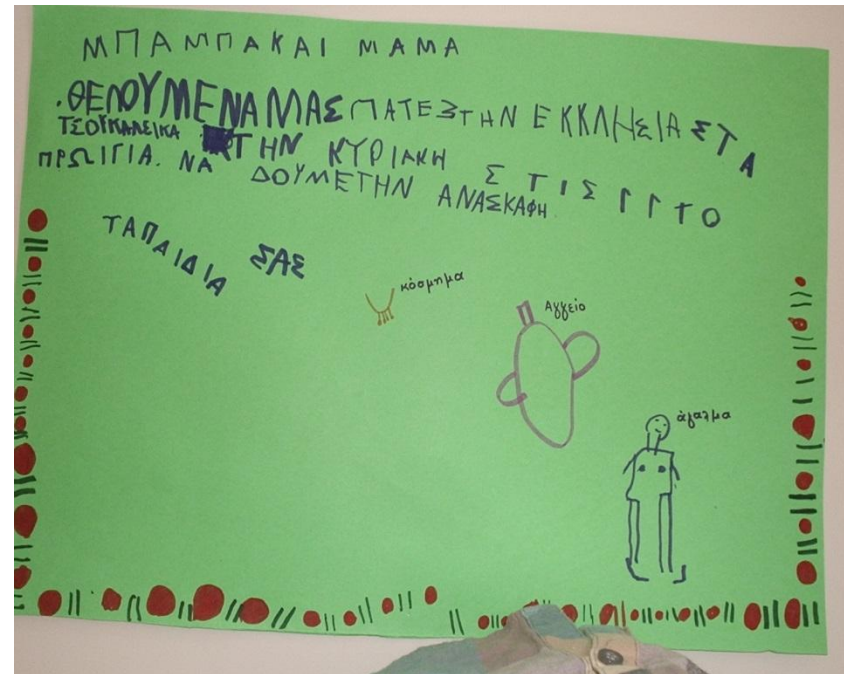 ΜΠΑΜΠΑΚΑΙ ΜΑΜΑ
.ΘΕΛΟΥΜΕΝΑΜΑΣ ΠΑΤΕΣΤΗΝ ΕΚΚΛΗΣΙΑ ΣΤΑ
ΤΣΟΥΚΑΛΕΙΚΑ ΤΗΝ ΚΥΡΙΑΚΗ ΣΤΙΣ 11 ΤΟ
ΠΡΩΙΓΙΑ. ΝΑ ΔΟΥΜΕΤΗΝ ΑΝΑΣΚΑΦΗ
ΤΑΠΑΙΔΙΑ ΣΑΣ
κόσμημα
Αγγείο
άγαλμα